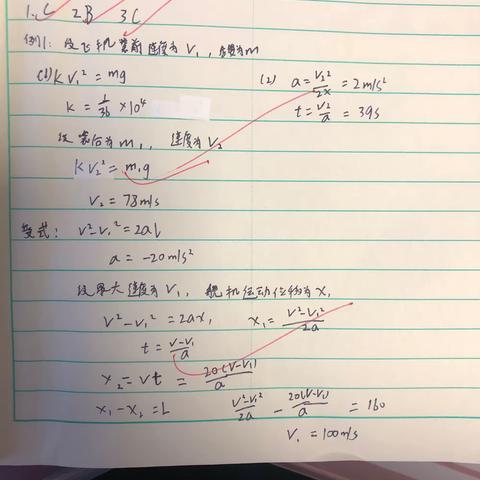 1.C 2B 3C
例1：设飞机装前速度为V₁，质量为m
(1) kv₁² = mg
(2) a = V₂²/2x = 2m/s²
k = 1/36 ×10⁴
t = V₂/a = 39s
设装后为m₁，速度为V₂
kV₂² = m₁g
V₂ = 78m/s
变式： V²-V₁² = 2aL
a = -20m/s²
设最大速度为V₁，舰机运动位移为x₁
V²-V₁² = 2ax₁ x₁ = V²-V₁²/2a
t = V-V₁/a
x₂ = vt = 20(V-V₁)/a
x₁-x₂ = L V²-V₁²/2a - 20(V-V₁)/a = 160
V₁ = 100m/s